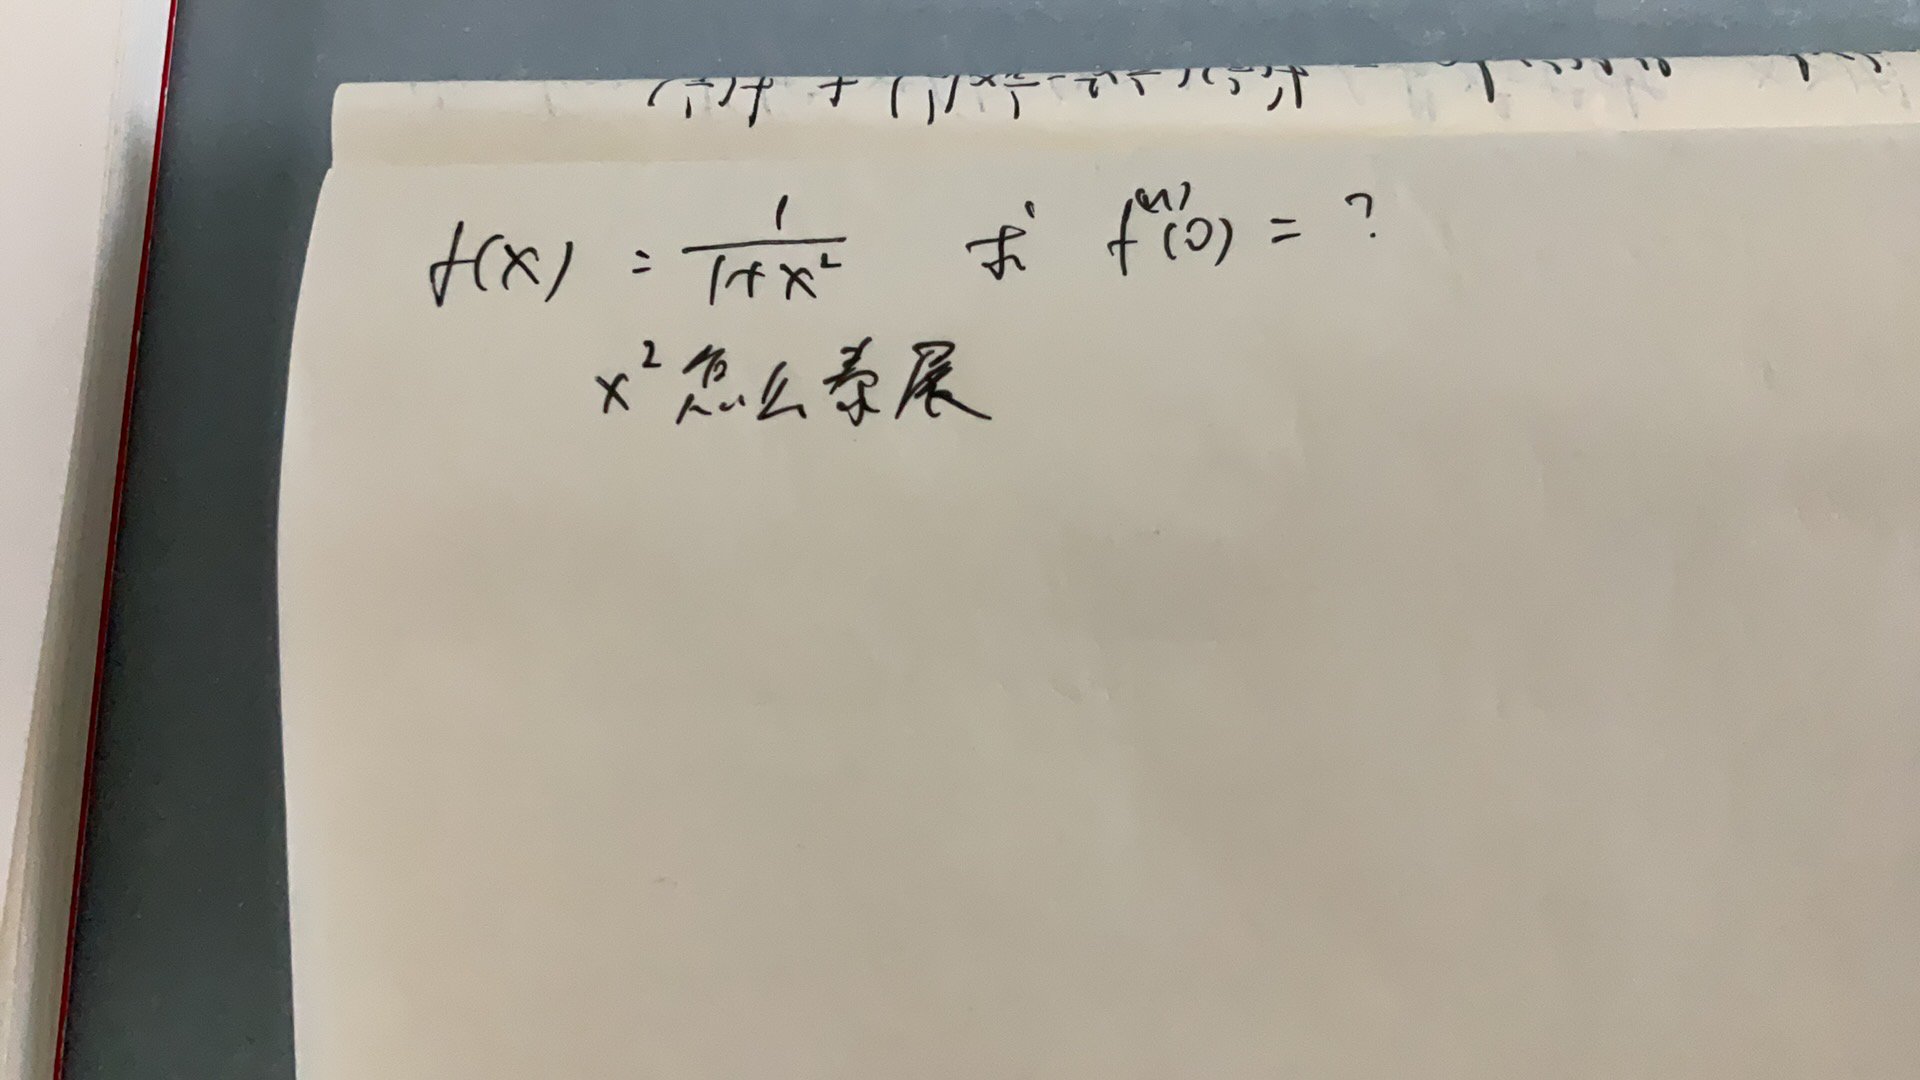 f(x) = \frac{1}{1+x^2} 求 f^{(n)}(0) = ?
x^2 怎么泰展